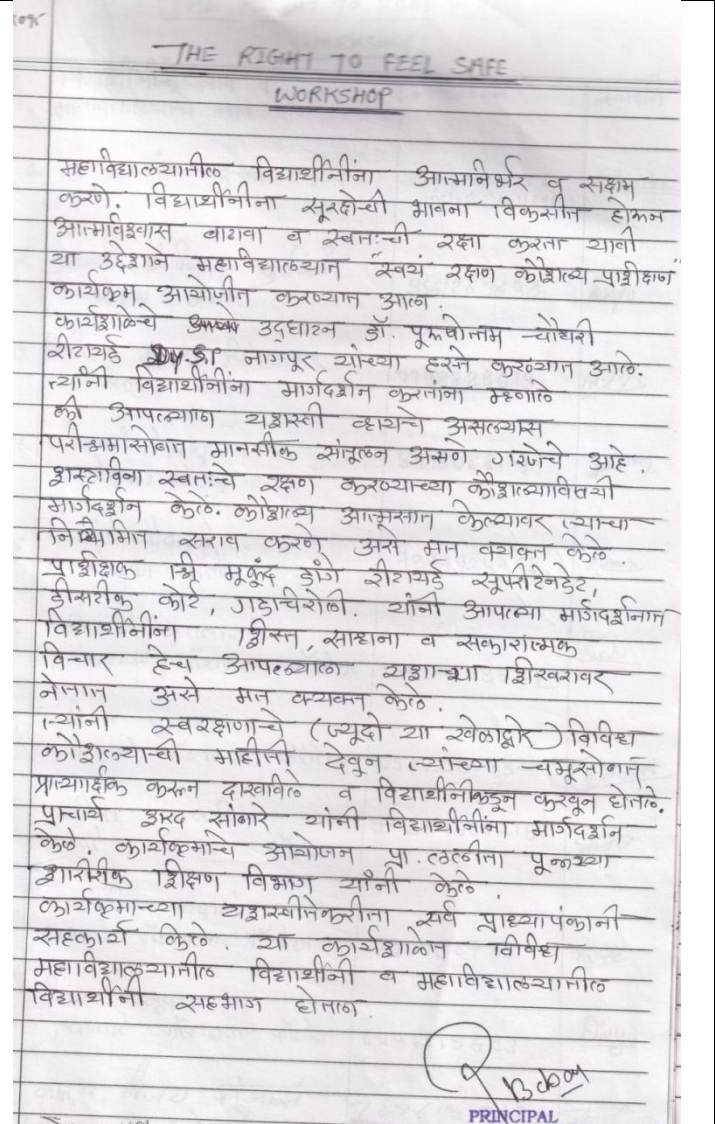 THE RIGHT TO FEEL SAFE
WORKSHOP
महाविद्यालयातील विद्यार्थीनींना आत्मनिर्भर व सक्षम
करणे. विद्यार्थीनीना सूरक्षेची भावना विकसीत होऊन
आत्मविश्वास वाढावा व स्वतःची रक्षा करता यावी
या उद्देशाने महाविद्यालयात "स्वयं रक्षण कौशल्य प्रशिक्षण"
कार्यक्रम आयोजीत करण्यात आला.
कार्यशाळेचे उद्घाटन डॉ. पूरूषोत्तम चौधरी
रीटायर्ड Dy.S.P नागपूर यांच्या हस्ते करण्यात आले.
त्यांनी विद्यार्थीनींना मार्गदर्शन करतांना म्हणाले
की आपल्याला यशस्वी व्हायचे असल्यास
परीश्रमासोबत मानसीक संतूलन असणे गरजेचे आहे.
शस्त्राविना स्वतःचे रक्षण करण्याच्या कौशल्याविषयी
मार्गदर्शन केले. कौशल्य आत्मसात केल्यावर त्याचा
नियमित सराव करणे असे मत व्यक्त केले
प्रशिक्षक श्रि मूकूंद डांगे रीटायर्ड सूपरीटेनडेंट,
डीसटीक कोर्ट, गडचिरोली. यांनी आपल्या मार्गदर्शनात
विद्यार्थीनींना शिस्त साधना व सकारात्मक
विचार हेच आपल्याला यशाच्या शिखरावर
नेतात असे मत व्यक्त केले.
त्यांनी स्वरक्षणाचे (ज्यूदो या खेळाद्वारे) विविध
कौशल्याची माहीती देवून त्यांच्या चमूसोबत
प्रात्याक्षिक करून दाखविले व विद्यार्थीनीकडून करवून घेतले.
प्राचार्य शरद सांबारे यांनी विद्यार्थीनींना मार्गदर्शन
केले. कार्यक्रमाचे आयोजन प्रा. ललीता पून्नया
शारीरीक शिक्षण विभाग यांनी केले
कार्यक्रमाच्या यशस्वीतेकरीता सर्व प्राध्यापकांनी
सहकार्य केले. या कार्यशाळेत विविध
महाविद्यालयातील विद्यार्थीनी व महाविद्यालयातील
विद्यार्थीनी सहभाग घेतला.
PRINCIPAL